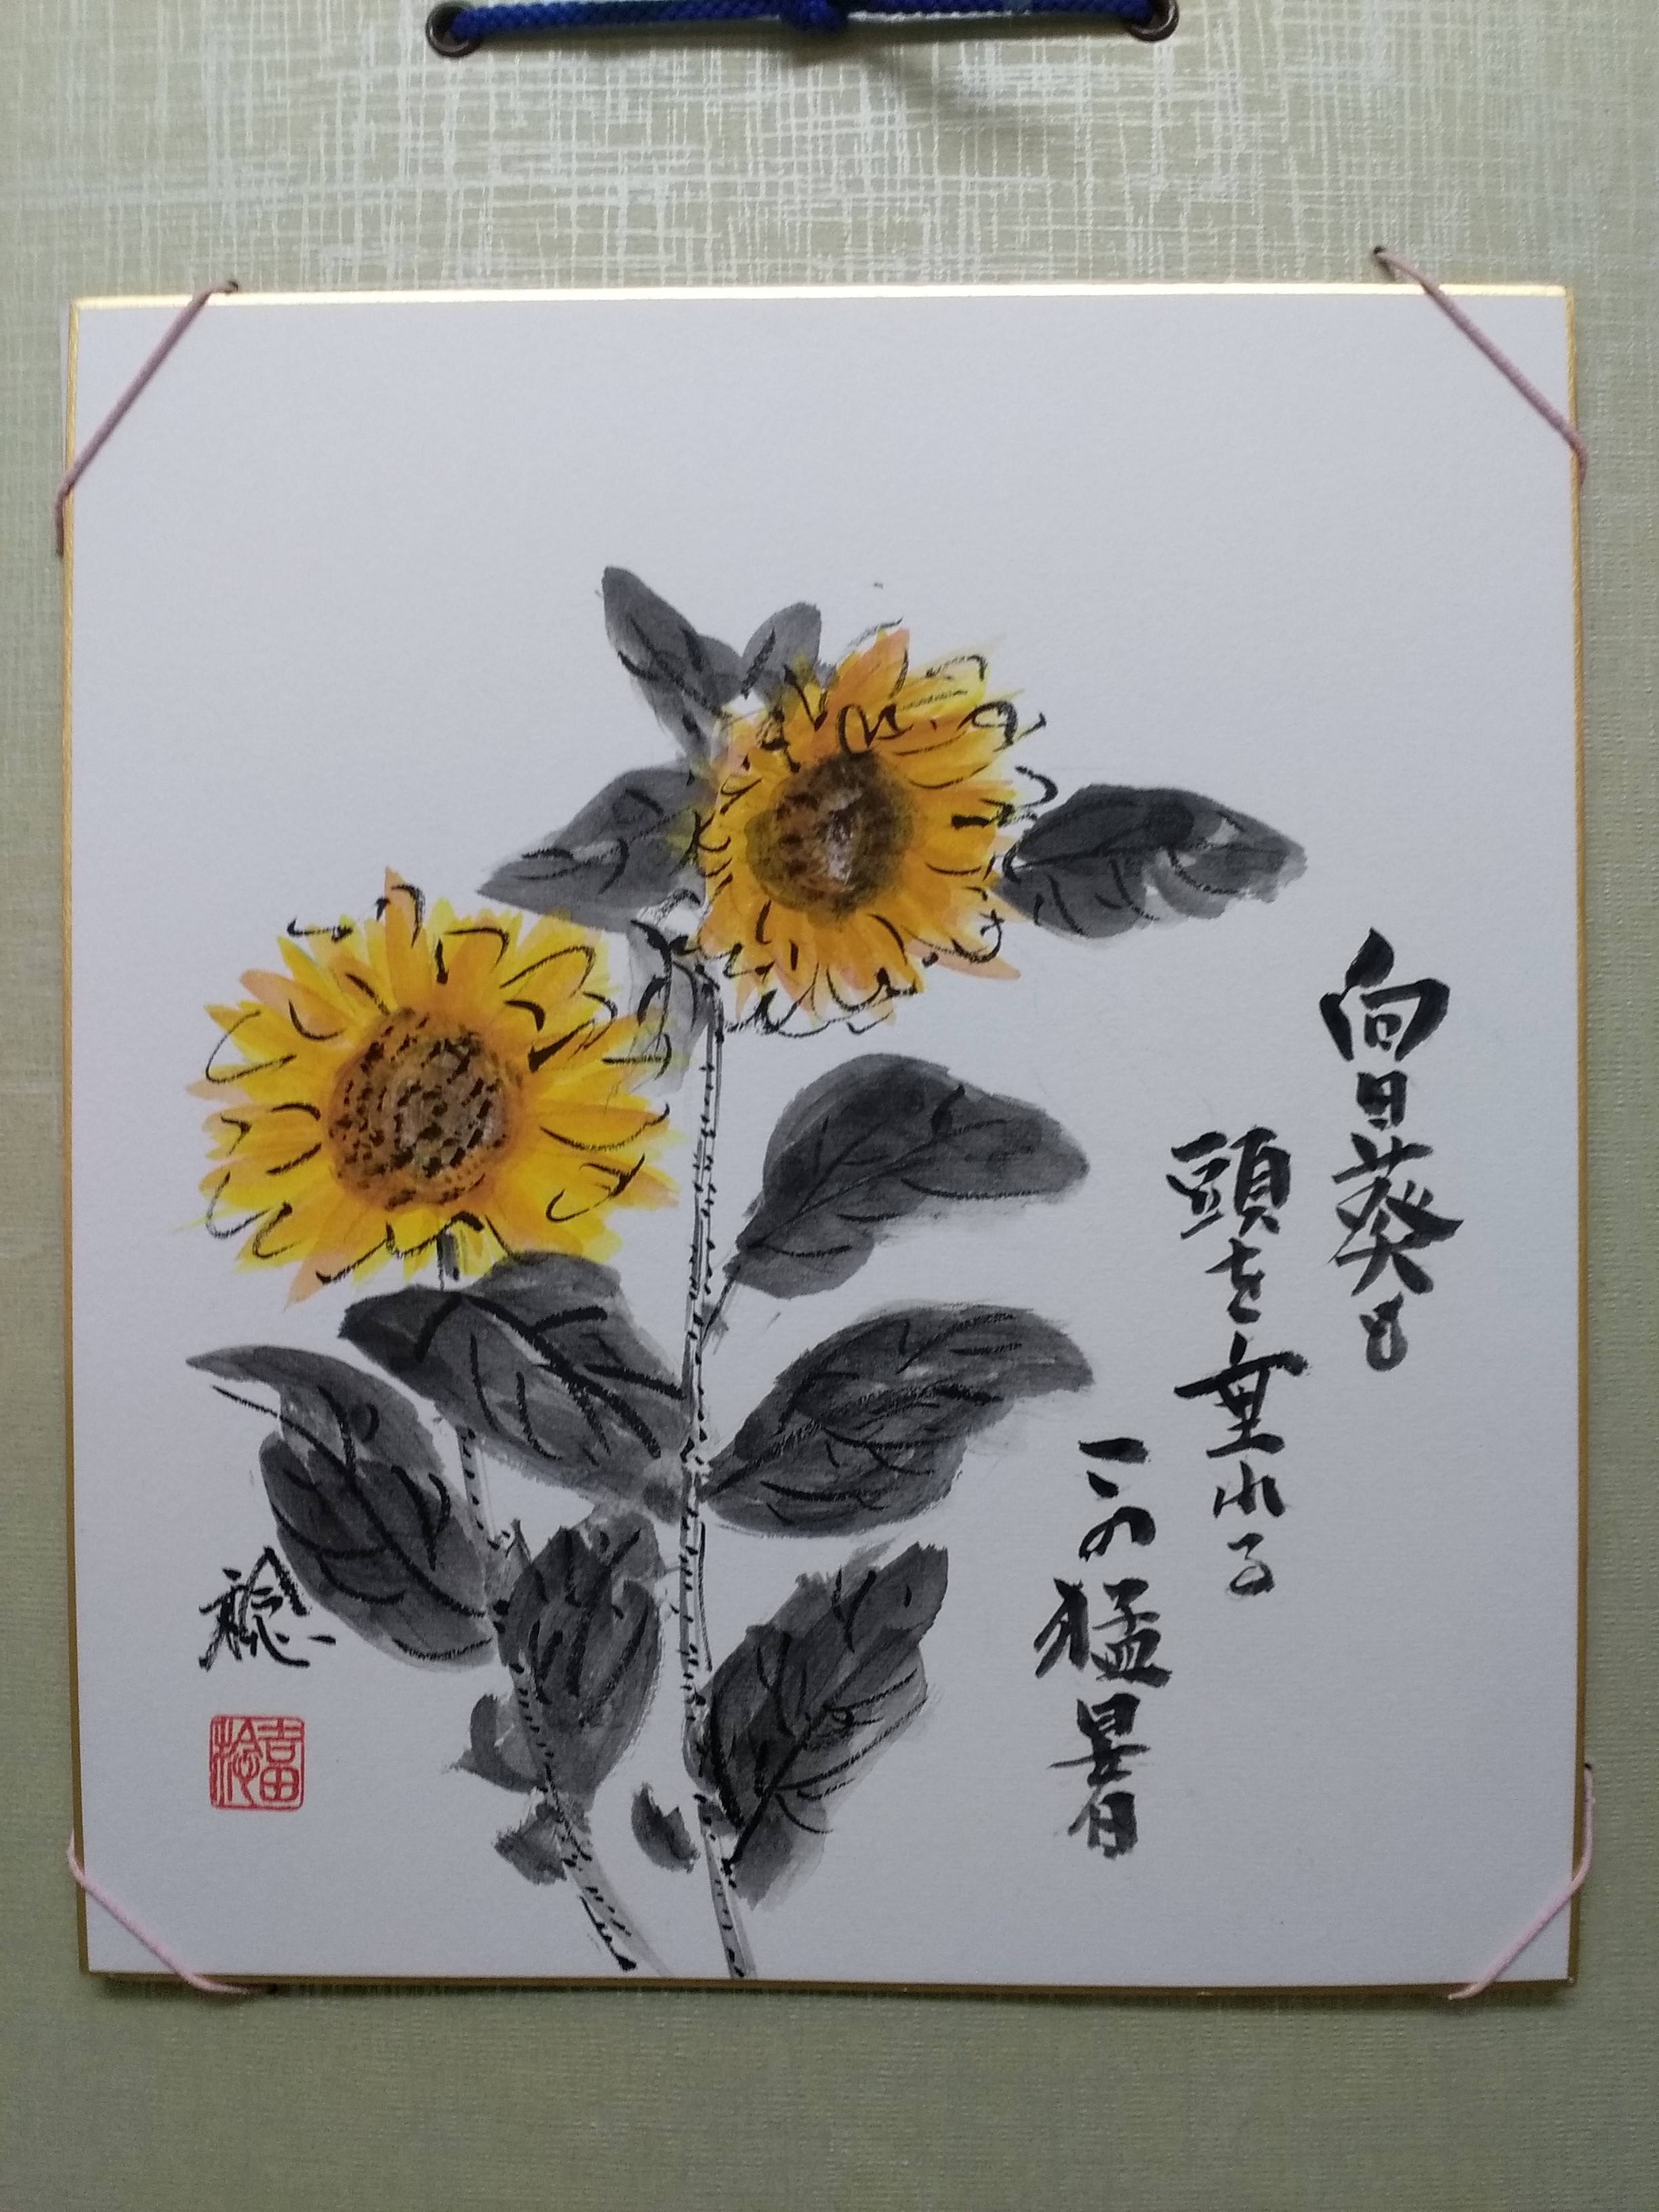 向日葵も
頭を垂れる
この猛暑
稔
吉田
稔